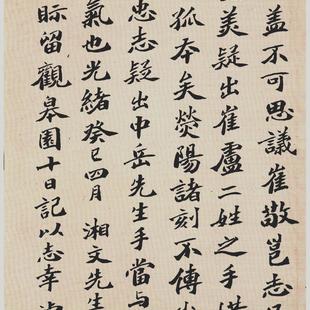 盖不可思議崔敬邕志
美疑出崔盧二姓之手
孤本矣滎陽諸刻不傳
忠志疑出中岳先生手當与
氣也光緒癸巳四月湘文先生
眎留觀皋園十日記以志幸